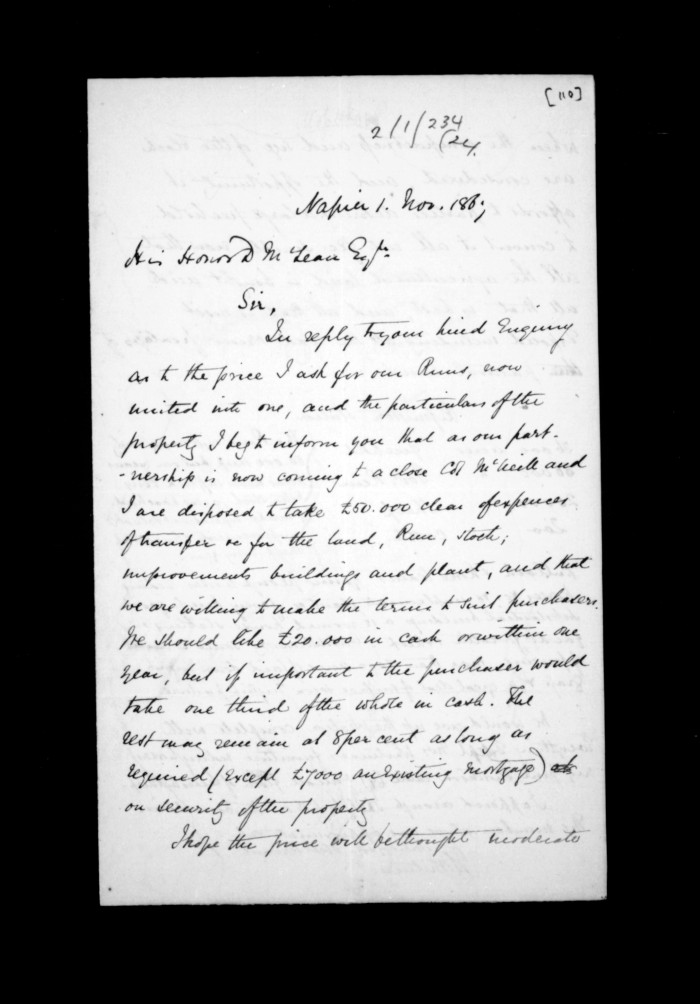 [110]
2/1/234
(24.
Napier 1. Nov. 1867
His Honor D McLean Esqre
Sir,
In reply to your kind Enquiry
as to the price I ask for our Runs, now
united into one, and the particulars of the
property I beg to inform you that as our part-
-nership is now coming to a close Col McNeill and
I are disposed to take £50.000 clear of expences
of transfer &c for the land, Run, stock,
improvements buildings and plant, and that
we are willing to make the terms to suit purchasers.
We should like £20.000 in cash or within one
year, but if important to the purchaser would
take one third of the whole in cash. The
rest may remain at 8 per cent as long as
required (Except £7000 an Existing mortgage)
on security of the property
I hope the price will be thought moderate